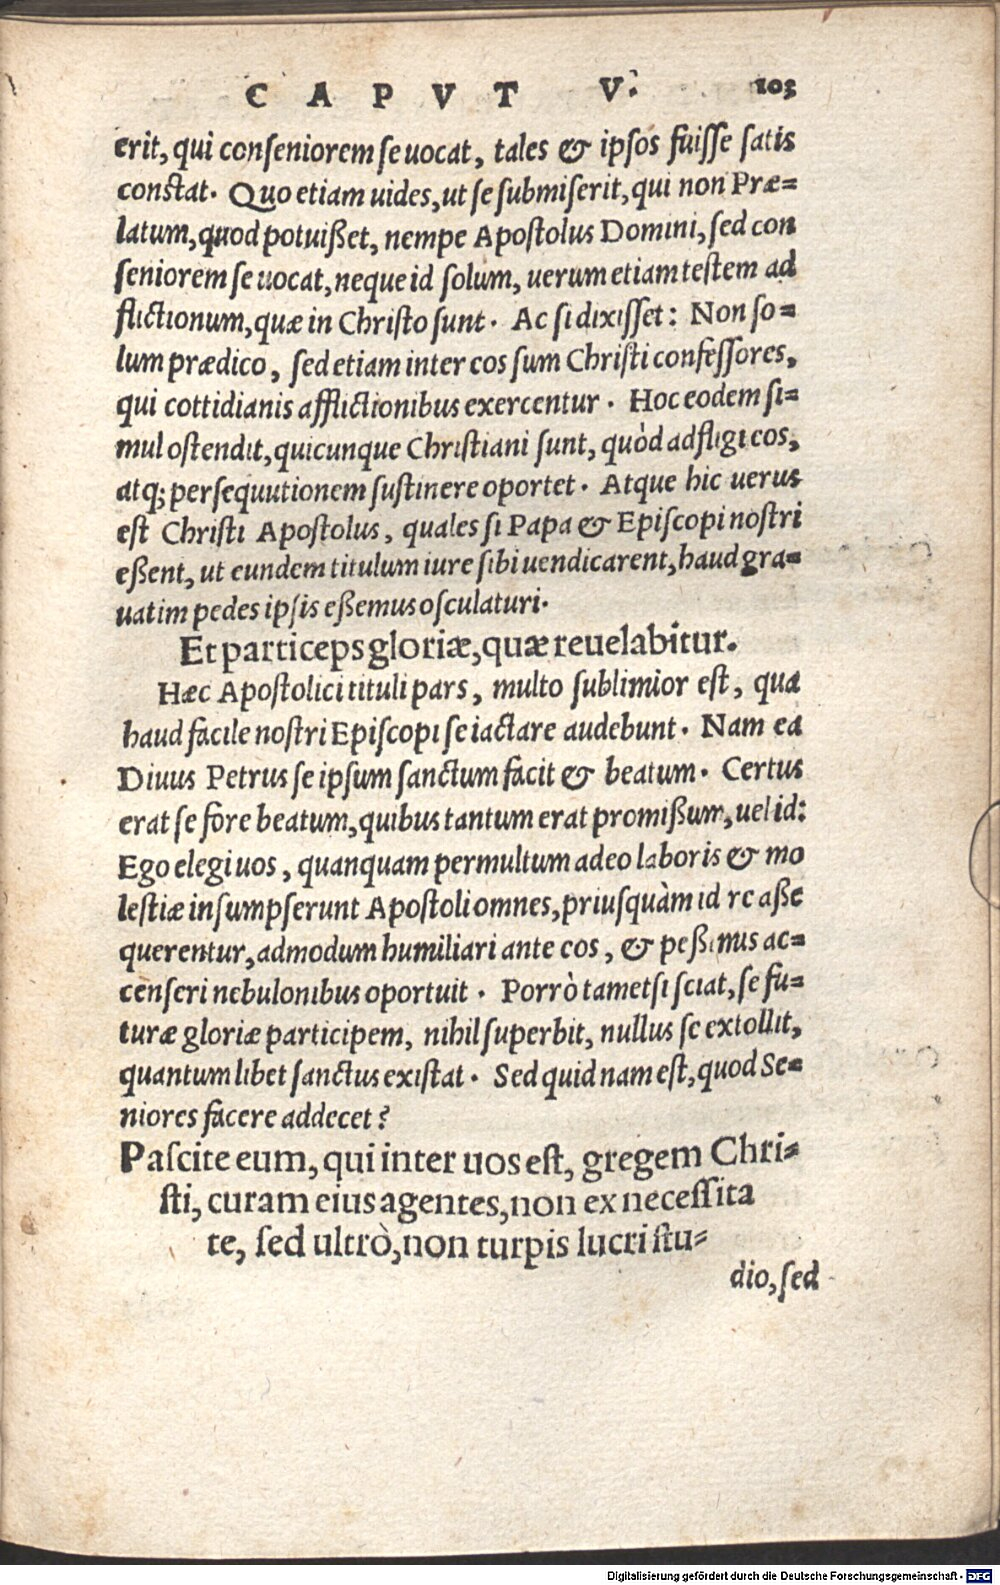 CAPVT V. 103
erit, qui conseniorem se uocat, tales & ipsos fuisse satis
constat. Quo etiam uides, ut se submiserit, qui non Præ=
latum, quod potuißet, nempe Apostolus Domini, sed con
seniorem se uocat, neque id solum, uerum etiam testem ad
flictionum, quæ in Christo sunt. Ac si dixisset: Non so=
lum prædico, sed etiam inter eos sum Christi confessores,
qui cottidianis afflictionibus exercentur. Hoc eodem si=
mul ostendit, quicunque Christiani sunt, quòd adfligi eos,
atq; persequutionem sustinere oportet. Atque hic uerus
est Christi Apostolus, quales si Papa & Episcopi nostri
eßent, ut eundem titulum iure sibi uendicarent, haud gra=
uatim pedes ipsis eßemus osculaturi.
Et particeps gloriæ, quæ reuelabitur.
Hæc Apostolici tituli pars, multo sublimior est, qua
haud facile nostri Episcopi se iactare audebunt. Nam ea
Diuus Petrus se ipsum sanctum facit & beatum. Certus
erat se fore beatum, quibus tantum erat promißum, uel id:
Ego elegi uos, quanquam permultum adeo laboris & mo
lestiæ insumpserunt Apostoli omnes, priusquàm id re aße
querentur, admodum humiliari ante eos, & peßimus ac=
censeri nebulonibus oportuit. Porrò tametsi sciat, se fu=
turæ gloriæ participem, nihil superbit, nullus se extollit,
quantumlibet sanctus existat. Sed quidnam est, quod Se=
niores facere addecet?
Pascite eum, qui inter uos est, gregem Chri=
sti, curam eius agentes, non ex necessita
te, sed ultrò, non turpis lucri stu=
dio, sed
Digitalisierung gefördert durch die Deutsche Forschungsgemeinschaft - DFG